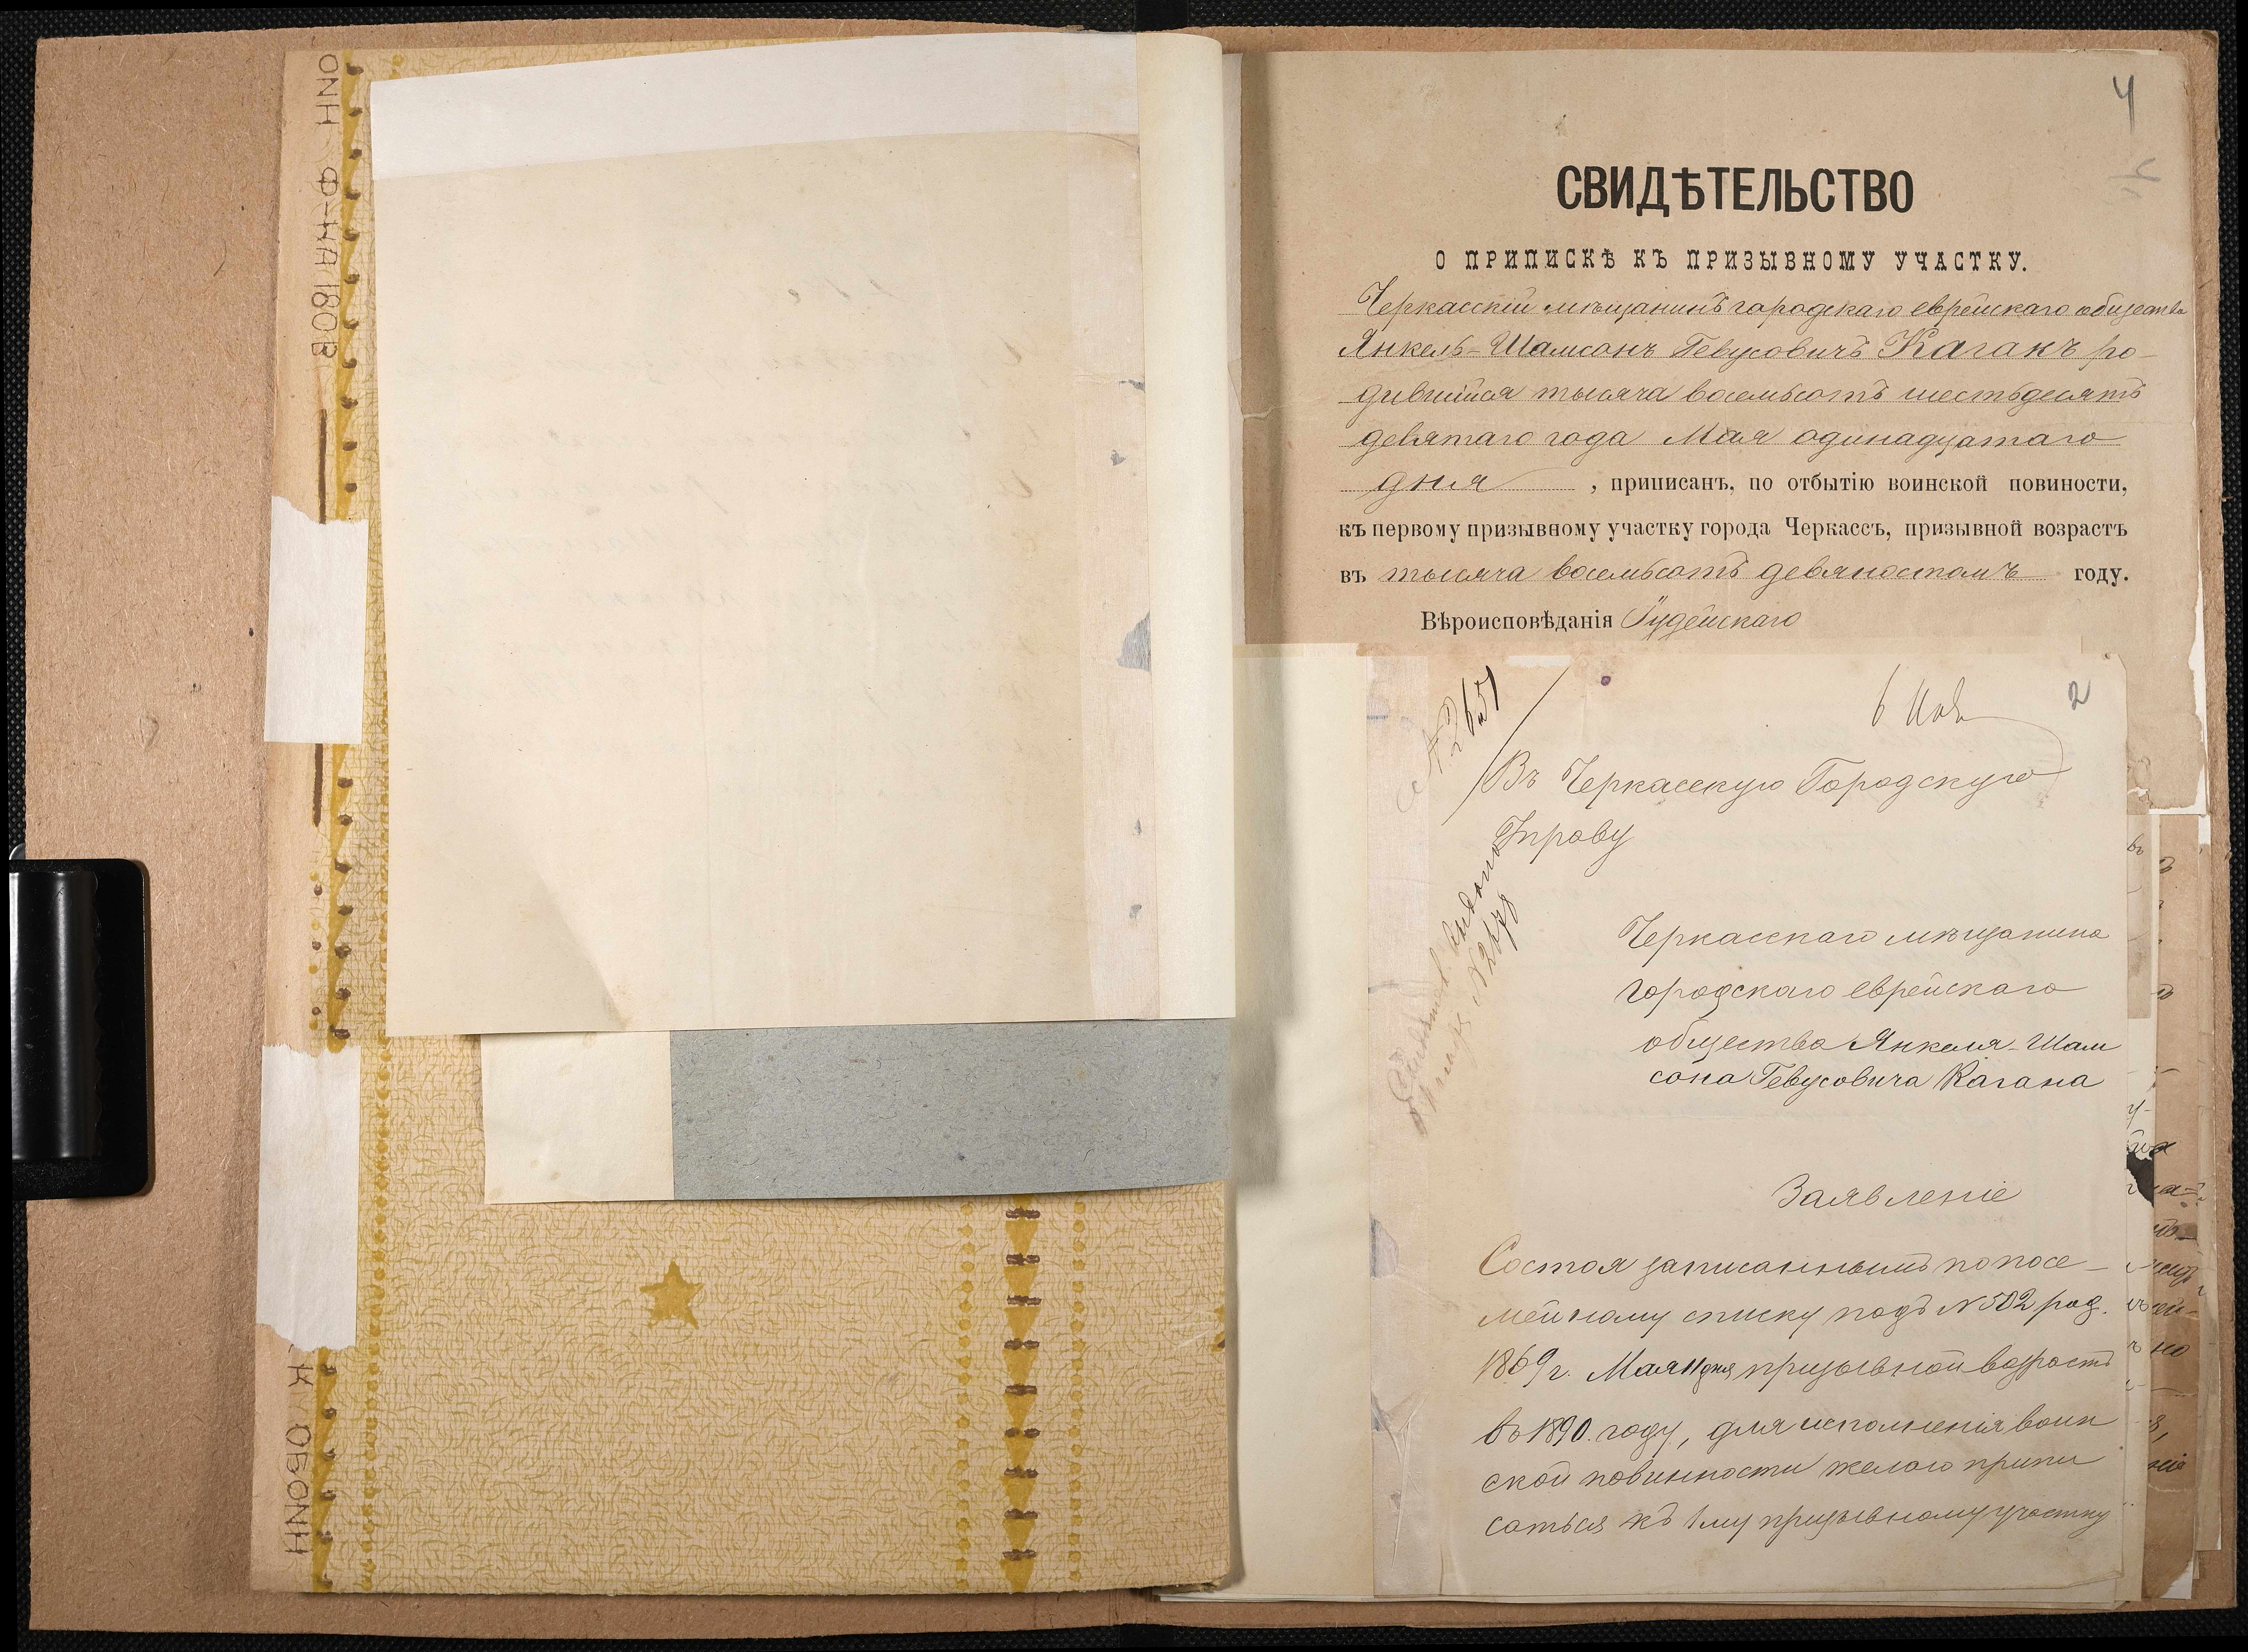 4
СВИДѢТЕЛЬСТВО
О ПРИПИСКѢ КЪ ПРИЗЫВНОМУ УЧАСТКУ.
Черкасскій мѣщанинъ городскаго еврейскаго общества
Янкель-Шамсонъ Гевусовичъ Каганъ ро-
дившійся тысяча восемьсотъ шестьдесятъ
девятаго года Мая одинадцатаго
дня , приписанъ, по отбытію воинской повиности,
къ первому призывному участку города Черкассъ, призывной возрастъ
въ тысяча восемьсотъ девяностомъ году.
Вѣроисповѣданія Іудейскаго
2
№ 2651
6 Ноя
Въ Черкасскую Городскую
Управу
№ 2678
Черкасскаго мѣщанина
городскаго еврейскаго
общества Янкеля-Шам
сона Гевусовича Кагана
Заявленіе
Состоя записаннымъ по посе-
мейному списку подъ № 502 род.
1869 г. Мая 11 дня призывной возрастъ
въ 1890. году, для исполненія воин
ской повинности желаю припи
саться къ 1му призывному участку